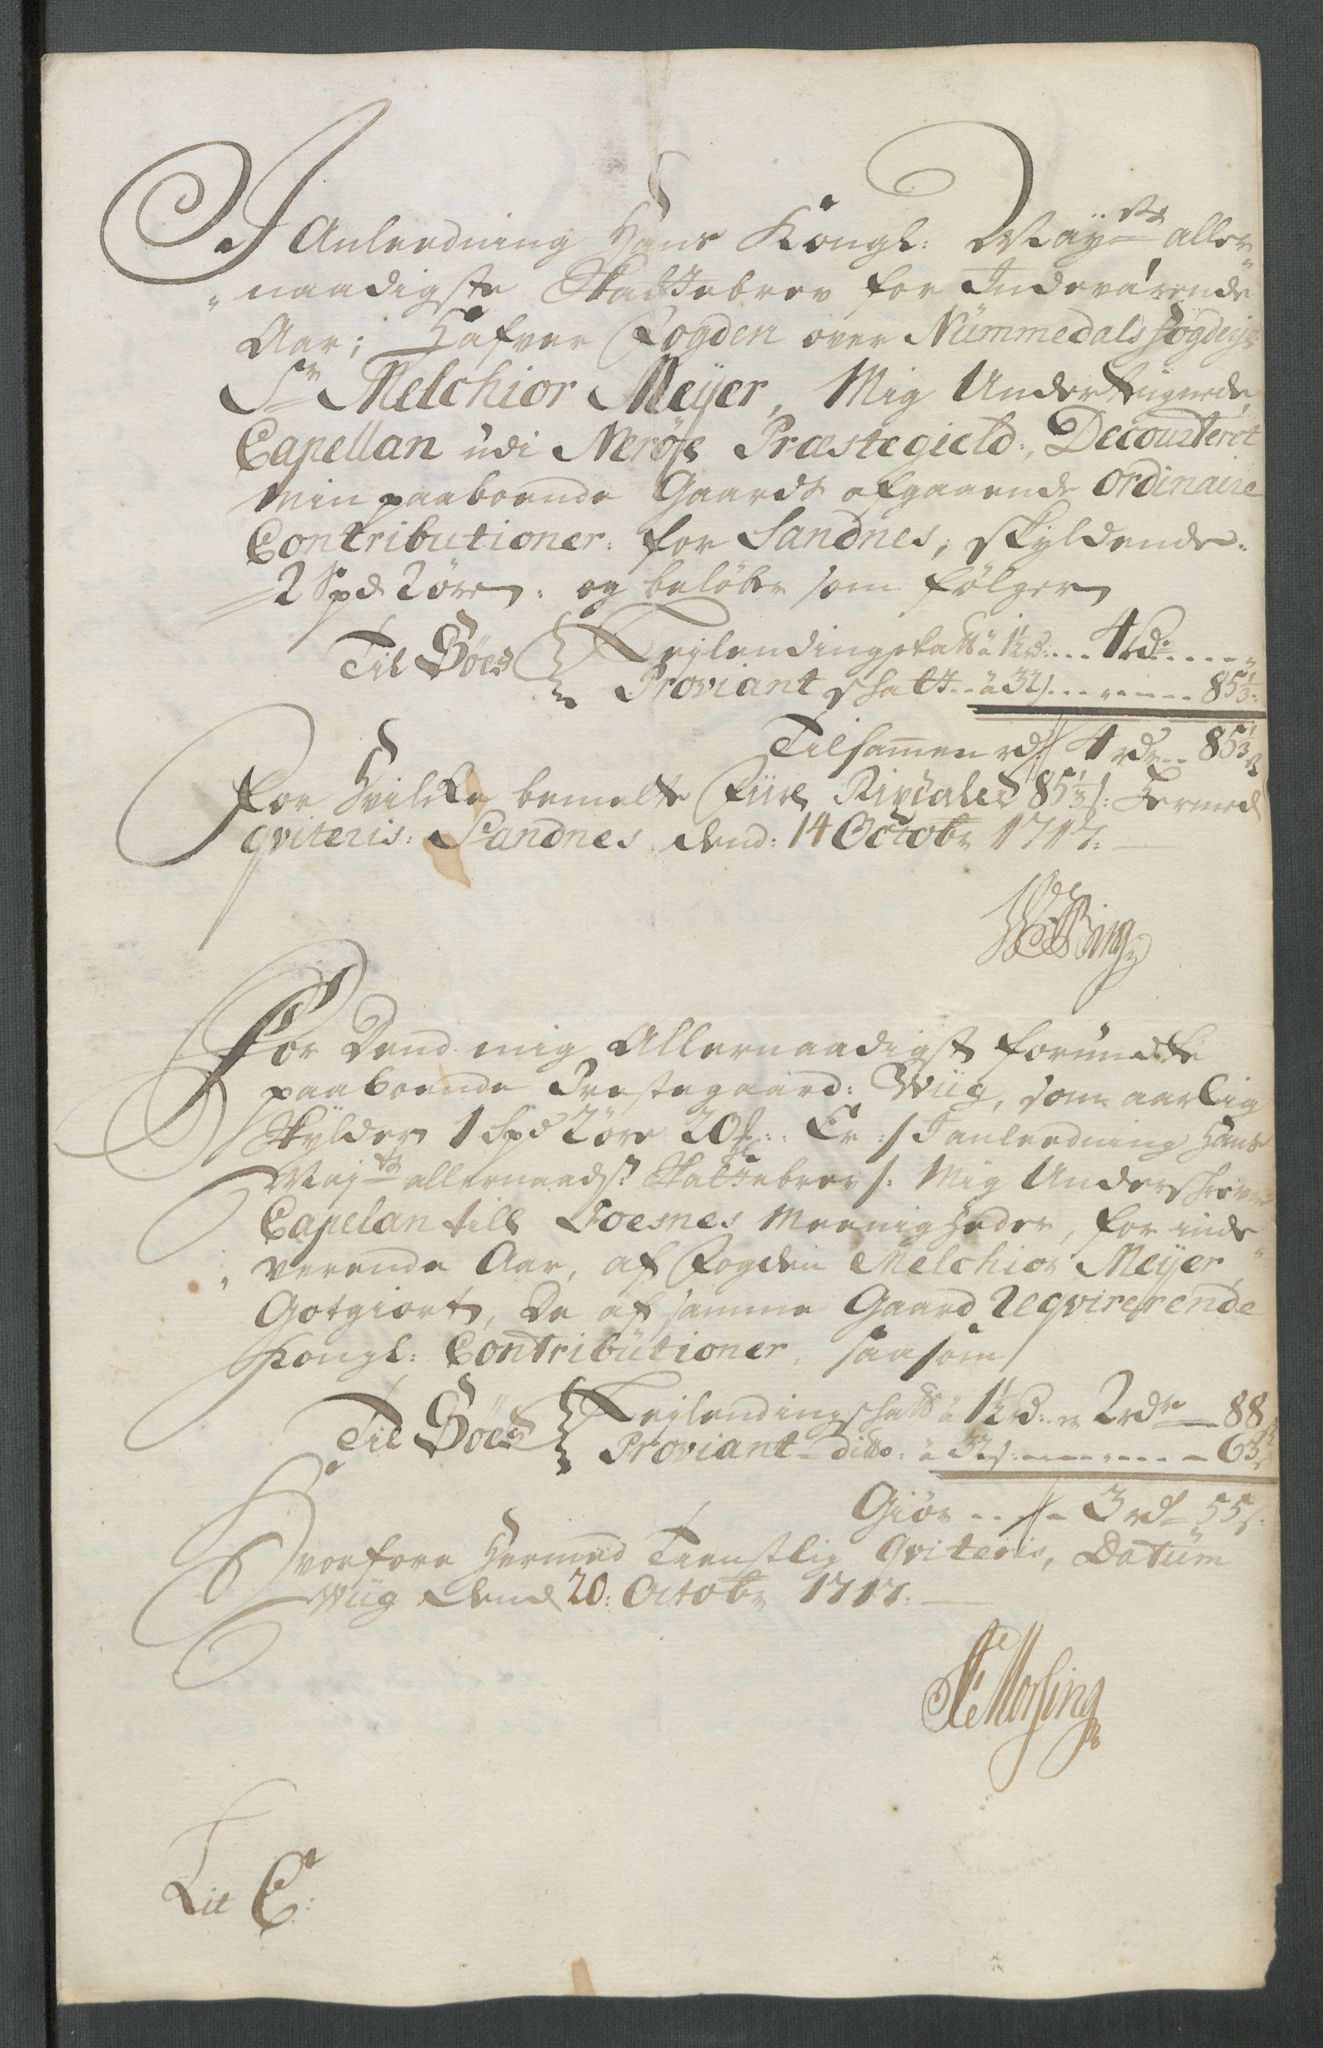 I Anledning Hans Kongl: May:ts aller„
„naadigste Skattebrev for Indeværende
Aar; Hafver Fogden over Nummedals fogderje
Sr Melchior Meÿer, Mig Undertegnede,
Capellan udi Nerøe Præstegield, Decourterit
min paaboende Gaards afgaaende Ordinaire
Contributioner: for Sandnes, skyldende:
2 Spd 2 öre: og beløber som følger
Til Böes { Lejlendingskatt â 1½ rd: .... 4 rdr .....
Proviant skatt .. â 32 s .... ...... 85⅓
Tilsammen rd: // 4 rdr .. 85⅓ s
For Hvilke bemelte Fiire Rixdaler 85⅓ s: Hermed
qviteris: Sandnes dend: 14 Octobr 1717:

For Dend mig Allernaadigst forundte
paaboende Prestegaard: Wiig, som aarlig
Skylder 1 Spd 2 öre 20 Er /: I anledning Hans
Maj:ts allernaads: Skattebrev :/ Mig Underschrevne
Capelan till Foesnes Meenigheder, for inde„
„verende Aar, af Fogden Melchior Meÿer,
Gotgiort, De af samme Gaard Reqvirerende
Kongl: Contributioner, saasom
Til Böes { Lejlendingskatt â 1½ rd: er 2 rdr — 88
Proviant ditto: â 32 s: ........ 63
Giör ... 3 rd 55 s:
Hvorfore Hermed Tienstlig Qviteris, Datum
Wiig dend 20: Octobr 1717:
Morsing
Lit C: